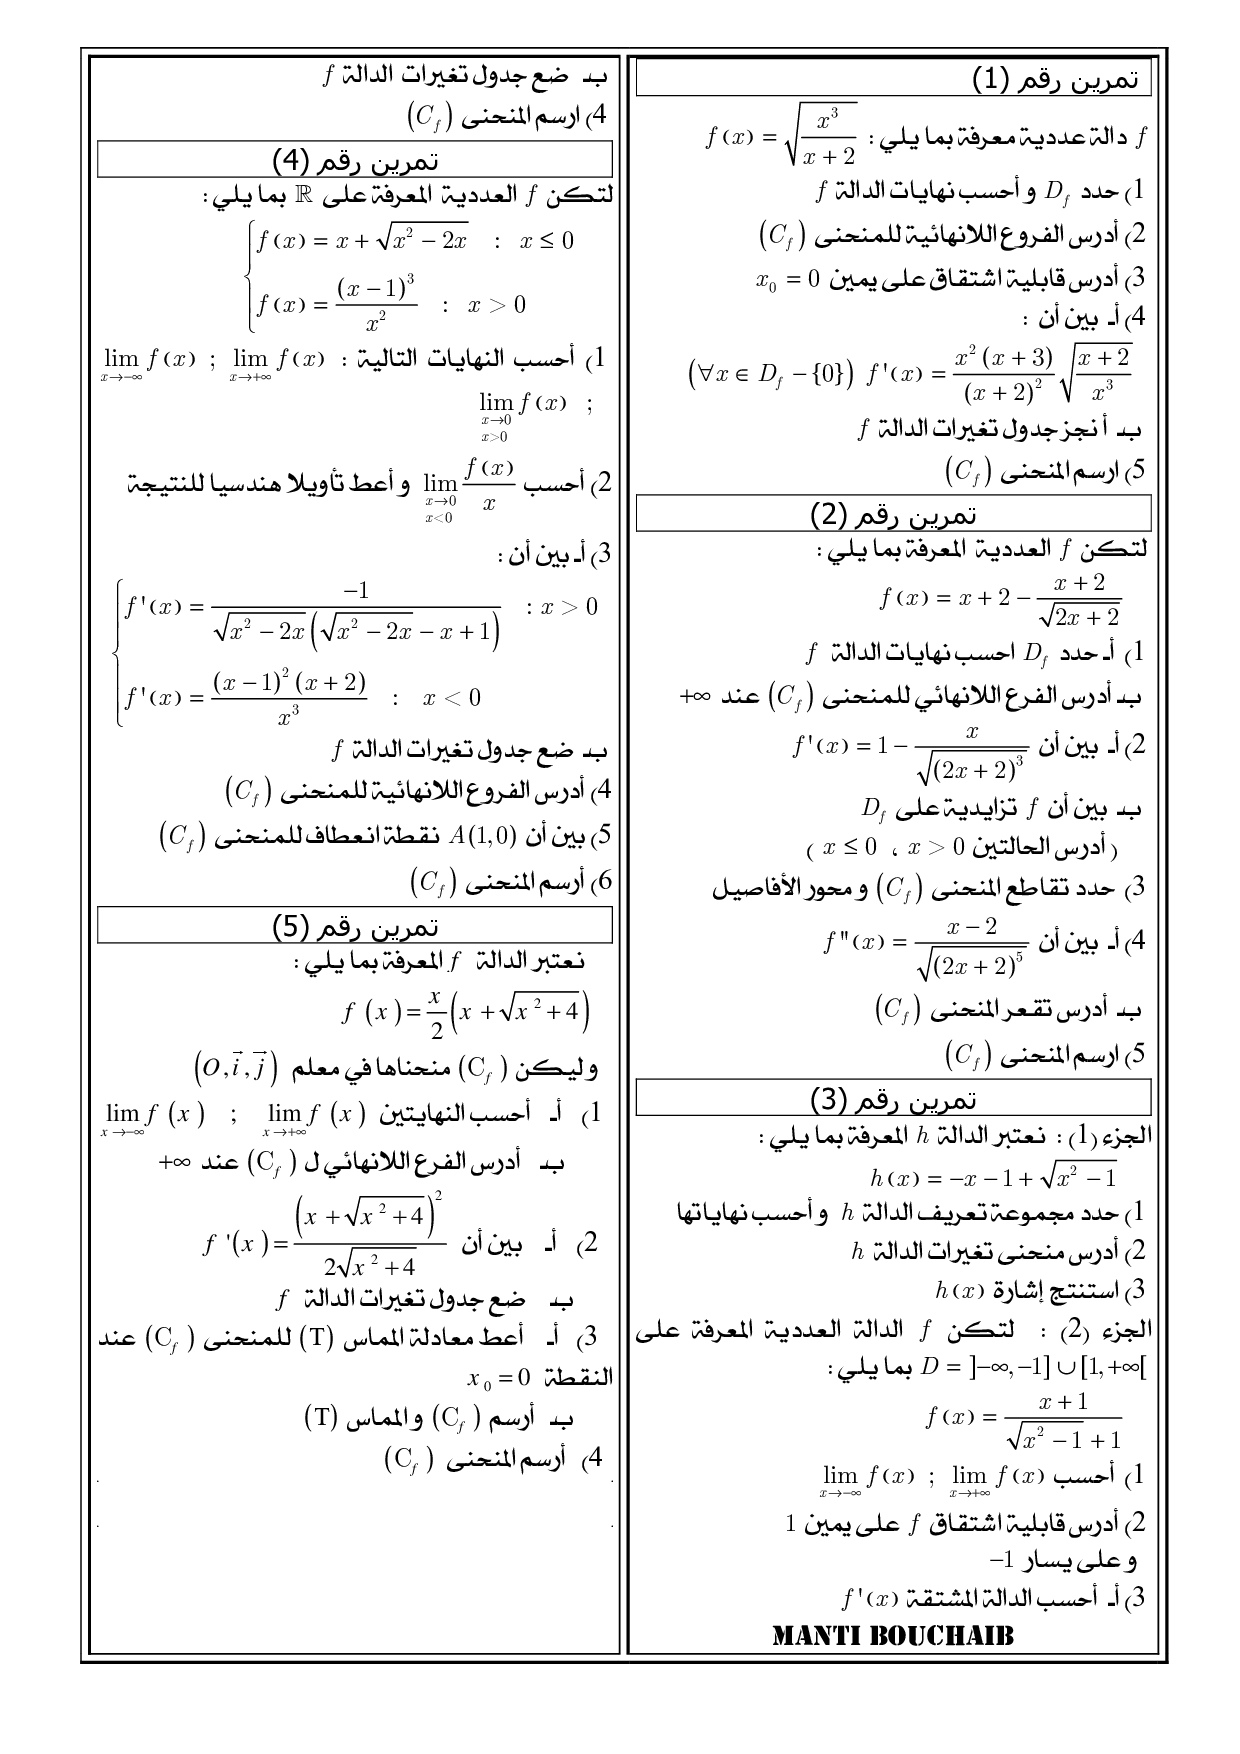 تمرين رقم (1)
f دالة عددية معرفة بما يلي : f(x) = √(x³/(x+2))
1) حدد D_f و أحسب نهايات الدالة f
2) أدرس الفروع اللانهائية للمنحنى (C_f)
3) أدرس قابلية اشتقاق على يمين x₀ = 0
4) أـ بين أن :
(∀x ∈ D_f − {0}) f'(x) = (x²(x+3)/(x+2)²) √((x+2)/x³)
بـ أنجز جدول تغيرات الدالة f
5) ارسم المنحنى (C_f)
تمرين رقم (2)
لتكن f العددية المعرفة بما يلي :
f(x) = x + 2 − (x+2)/√(2x+2)
1) أـ حدد D_f احسب نهايات الدالة f
بـ أدرس الفرع اللانهائي للمنحنى (C_f) عند +∞
2) أـ بين أن f'(x) = 1 − x/√((2x+2)³)
بـ بين أن f تزايدية على D_f
( أدرس الحالتين x > 0 ، x ≤ 0 )
3) حدد تقاطع المنحنى (C_f) و محور الأفاصيل
4) أـ بين أن f''(x) = (x−2)/√((2x+2)⁵)
بـ أدرس تقعر المنحنى (C_f)
5) ارسم المنحنى (C_f)
تمرين رقم (3)
الجزء (1) : نعتبر الدالة h المعرفة بما يلي :
h(x) = −x − 1 + √(x² − 1)
1) حدد مجموعة تعريف الدالة h و أحسب نهاياتها
2) أدرس منحنى تغيرات الدالة h
3) استنتج إشارة h(x)
الجزء (2) : لتكن f الدالة العددية المعرفة على
D = ]−∞,−1] ∪ [1,+∞[ بما يلي :
f(x) = (x+1)/(√(x²−1) + 1)
1) أحسب lim_{x→+∞} f(x) ; lim_{x→−∞} f(x)
2) أدرس قابلية اشتقاق f على يمين 1
و على يسار −1
3) أـ أحسب الدالة المشتقة f'(x)
MANTI BOUCHAIB
بـ ضع جدول تغيرات الدالة f
4) ارسم المنحنى (C_f)
تمرين رقم (4)
لتكن f العددية المعرفة على ℝ بما يلي :
{ f(x) = x + √(x² − 2x) : x ≤ 0
f(x) = (x−1)³/x² : x > 0
1) أحسب النهايات التالية : lim_{x→+∞} f(x) ; lim_{x→−∞} f(x)
; lim_{x→0, x>0} f(x)
2) أحسب lim_{x→0, x<0} f(x)/x و أعط تأويلا هندسيا للنتيجة
3) أـ بين أن :
{ f'(x) = −1/(√(x²−2x)(√(x²−2x) − x + 1)) : x > 0
f'(x) = (x−1)²(x+2)/x³ : x < 0
بـ ضع جدول تغيرات الدالة f
4) أدرس الفروع اللانهائية للمنحنى (C_f)
5) بين أن A(1,0) نقطة انعطاف للمنحنى (C_f)
6) أرسم المنحنى (C_f)
تمرين رقم (5)
نعتبر الدالة f المعرفة بما يلي :
f(x) = (x/2)(x + √(x² + 4))
وليكن (C_f) منحناها في معلم (O, i⃗, j⃗)
1) أـ أحسب النهايتين lim_{x→+∞} f(x) ; lim_{x→−∞} f(x)
بـ أدرس الفرع اللانهائي ل (C_f) عند +∞
2) أـ بين أن f'(x) = (x + √(x²+4))²/(2√(x²+4))
بـ ضع جدول تغيرات الدالة f
3) أـ أعط معادلة المماس (T) للمنحنى (C_f) عند
النقطة x₀ = 0
بـ أرسم (C_f) و المماس (T)
4) أرسم المنحنى (C_f)